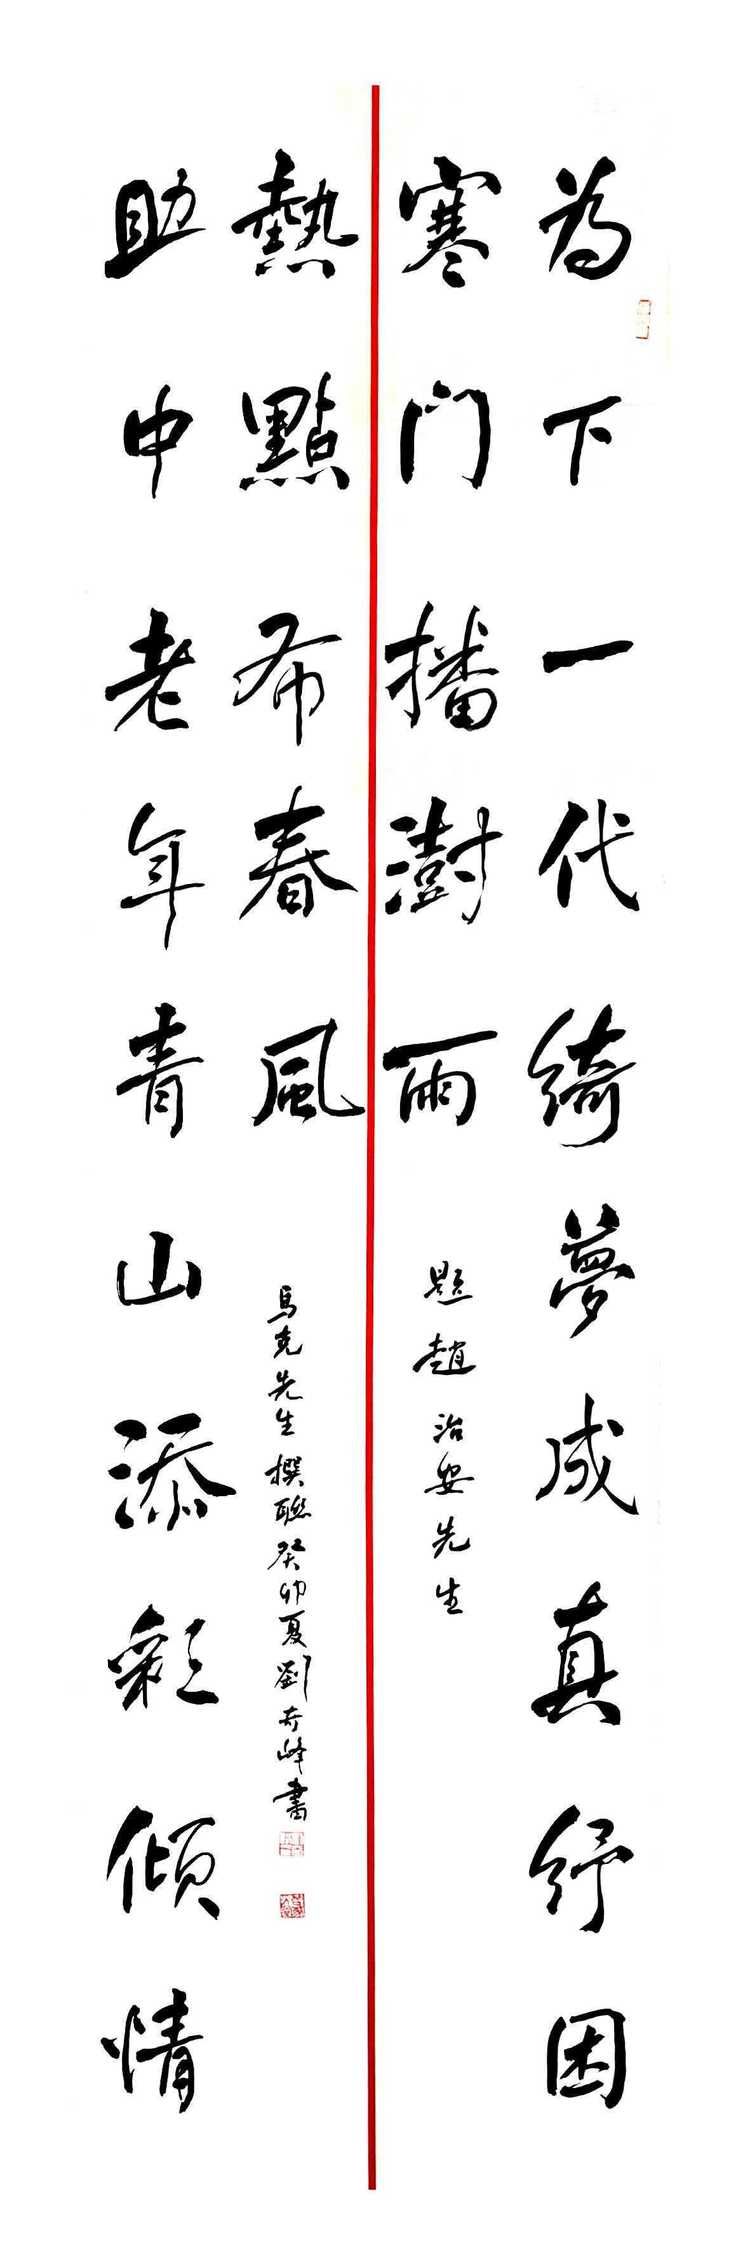 為下一代綺夢成真紓困
寒门播澍雨
題趙治安先生
助中老年青山添彩傾情
熱點布春風
馬克先生撰聯癸卯夏劉奇峰書